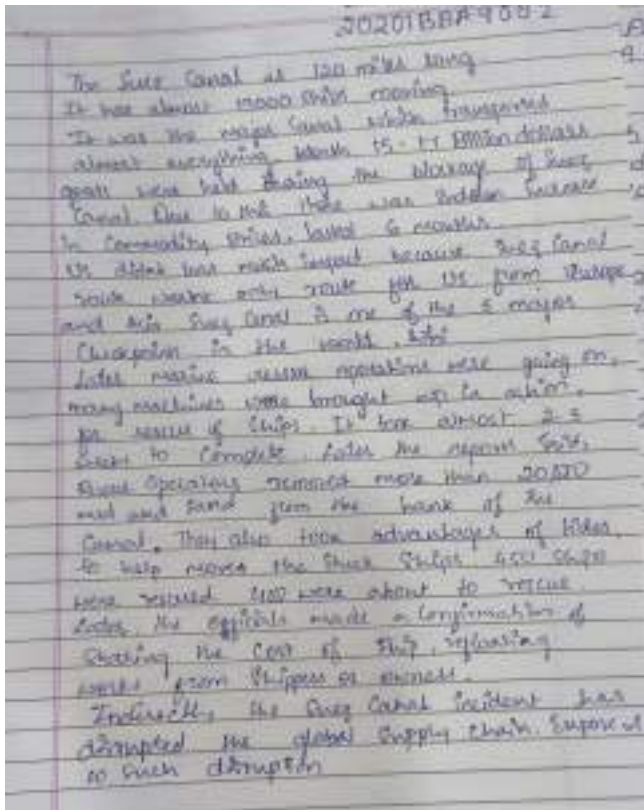 The Suez Canal is 120 miles long
It has almost 19000 ships moving
It was the major Canal which transported
almost everything. Worth 15-17 Billion dollars
goods were held during the blockage of Suez
Canal. Due to this there was sudden increase
in Commodity prices, lasted 6 months.
US didnt has much impact because Suez Canal
route only route for US from Europe
and Asia Suez Canal is one of the major
Checkpoint in the world.
Later marine rescue operations were going on,
many machines were brought up in action,
for rescue of Ships. It took almost
to Complete. Later the reports
operators removed more than
mud and sand from the bank of the
Canal. They also took advantages of tides,
to help moves the stuck Ships. 450 Ships
were rescued 400 were about to rescue.
Later, the officials made a Confirmation of
the Cost of Ship,
from Shippers or owners.
Indirectly, the Suez Canal incident has
disrupted the global Supply Chain.
to such disruption